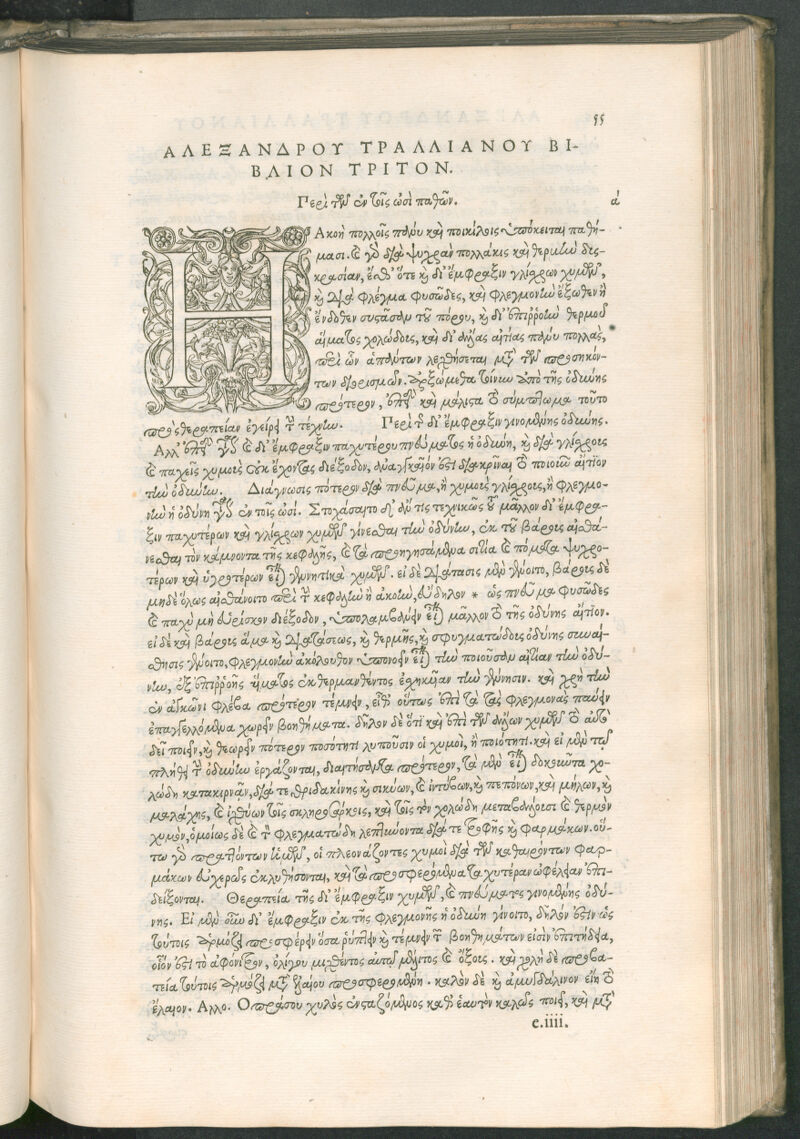 55
ΑΛΕΞΑΝΔΡΟΥ ΤΡΑΛΛΙΑΝΟΥ ΒΙ-
ΒΛΙΟΝ ΤΡΙΤΟΝ.
Περὶ τῶν ἐν τοῖς ὠσὶ παθῶν. α
Η Ακοὴ πολλοῖς πάνυ καὶ ποικίλοις ὑπόκειται παθή-
μασι. καὶ γὰρ διὰ ψυχρὰν πολλάκις καὶ θερμὴν δυσ-
κρασίαν, ἔσθ' ὅτε καὶ δι' ἔμφραξιν γλίσχρων χυμῶν,
καὶ διὰ φλέγμα φυσῶδες, καὶ φλεγμονὴν ἔξωθεν ἢ
ἔνδοθεν συστᾶσαν τοῦ πόρου, καὶ δι' ἐπιρροὴν θερμοῦ
αἵματος χολώδους, καὶ δι' ἄλλας αἰτίας πάνυ πολλὰς,
περὶ ὧν ἁπάντων λεχθήσεται μετὰ τῶν προσηκόν-
των διορισμῶν. ἀρξώμεθα τοίνυν ἀπὸ τῆς ὀδύνης
πρότερον, ἐπειδὴ καὶ μάλιστα τὸ σύμπτωμα τοῦτο
πρὸς θεραπείαν ἐγείρει τὸν τεχνίτην. Περὶ τῆς δι' ἔμφραξιν γινομένης ὀδύνης.
Αλλ' ἐπειδὴ καὶ δι' ἔμφραξιν παχυτέρου πνεύματος ἡ ὀδύνη, καὶ διὰ γλίσχρους
καὶ παχεῖς χυμοὺς οὐκ ἔχοντας διέξοδον, ἀναγκαῖόν ἐστι διακρῖναι τὸ ποιοῦν αἴτιον
τὴν ὀδύνην. Διάγνωσις πότερον διὰ πνεῦμα, ἢ χυμοὺς γλίσχρους, ἢ φλεγμο-
νὴν ἡ ὀδύνη ἐν τοῖς ὠσί. Στοχάσαιτο δ' ἄν τις τεχνικῶς τοῦ μᾶλλον δι' ἔμφρα-
ξιν παχυτέρων καὶ γλίσχρων χυμῶν γίνεσθαι τὴν ὀδύνην, ἐκ τοῦ βάρους αἰσθά-
νεσθαι τὸν κάμνοντα τῆς κεφαλῆς, καὶ τὰ προηγησάμενα σιτία καὶ πόματα ψυχρο-
τέρων καὶ ὑγροτέρων εἶναι γεννητικὰ χυμῶν. εἰ δὲ διάτασις μὲν γένοιτο, βάρους δὲ
μηδὲ ὅλως αἰσθάνοιτο περὶ τὴν κεφαλὴν ἢ ἀκοὴν, εὔδηλον * ὡς πνεῦμα φυσῶδες
καὶ παχὺ μὴ εὑρίσκον διέξοδον, ὑπολαμβάνειν εἶναι μᾶλλον τὸ τῆς ὀδύνης αἴτιον.
εἰ δὲ καὶ βάρους ἅμα καὶ διατάσεως, καὶ θερμῆς, καὶ σφυγματώδους ὀδύνης συναί-
σθησις γένοιτο, φλεγμονὴν ἀκόλουθον ὑπονοεῖν εἶναι τὴν ποιοῦσαν αἰτίαν τὴν ὀδύ-
νην, ἐξ ἐπιρροῆς αἵματος ἐκθερμανθέντος ἐσχηκυῖαν τὴν γένεσιν. καὶ χρὴ τὴν
ἐν ἀγκῶνι φλέβα πρότερον τέμνειν, εἶθ' οὕτως ἐπὶ τὰ τὰς φλεγμονὰς παύειν
ἐπαγγελλόμενα χωρεῖν βοηθήματα. δῆλον δὲ ὅτι καὶ ἐπὶ τῶν ἄλλων χυμῶν τὸ αὐτὸ
δεῖ ποιεῖν, καὶ θεωρεῖν πότερον ποσότητι λυποῦσιν οἱ χυμοὶ, ἢ ποιότητι. καὶ εἰ μὲν τῷ
πλήθει τὴν ὀδύνην ἐργάζονται, διαιτήσαντα πρότερον, τὰ μὲν εἶναι δοκοῦντα χο-
λώδη κατακιρνᾶν, διά τε θριδακίνης καὶ σικύων, καὶ ἰντύβων, καὶ πεπόνων, καὶ μήλων, καὶ
μαλάχης, καὶ ἰχθύων τοῖς σκληροσάρκοις, καὶ τοῖς τὸν χολώδη μεταβάλλουσι καὶ θερμὸν
χυμὸν, ὁμοίως δὲ καὶ τὸν φλεγματώδη λεπτύνοντα διά τε τροφῆς καὶ φαρμάκων. οὕ-
τω γὰρ πραττόντων ἡμῶν, οἱ πλεονάζοντες χυμοὶ διὰ τῶν καθαιρόντων φαρ-
μάκων εὐχερῶς ἐκλυθήσονται, καὶ τὰ προσφερόμενα ταχυτέραν ὠφέλειαν ἐπι-
δείξονται. Θεραπεία τῆς δι' ἔμφραξιν χυμῶν, καὶ πνεύματος γινομένης ὀδύ-
νης. Εἰ μὲν οὖν δι' ἔμφραξιν ἐκ τῆς φλεγμονῆς ἡ ὀδύνη γίνοιτο, δῆλόν ἐστιν ὡς
τούτοις ἁρμόζει προσφέρειν ὅσα ῥύπτειν καὶ τέμνειν τῶν βοηθημάτων εἰσὶν ἐπιτήδεια,
οἷόν ἐστι τὸ ἀφόνιτρον, ὀλίγου μιχθέντος αὐτῷ μέλιτος καὶ ὄξους. καὶ χολὴ δὲ προβα-
τεία τούτοις ἁρμόζει μετὰ ἐλαίου προσφερομένη. καλὸν δὲ καὶ ἀμυγδάλινον εἴη τὸ
ἔλαιον. Αλλο. Ο πράσου χυλὸς ἐνσταζόμενος καθ' ἑαυτὸν καλῶς ποιεῖ, καὶ μετὰ
e.iiii.